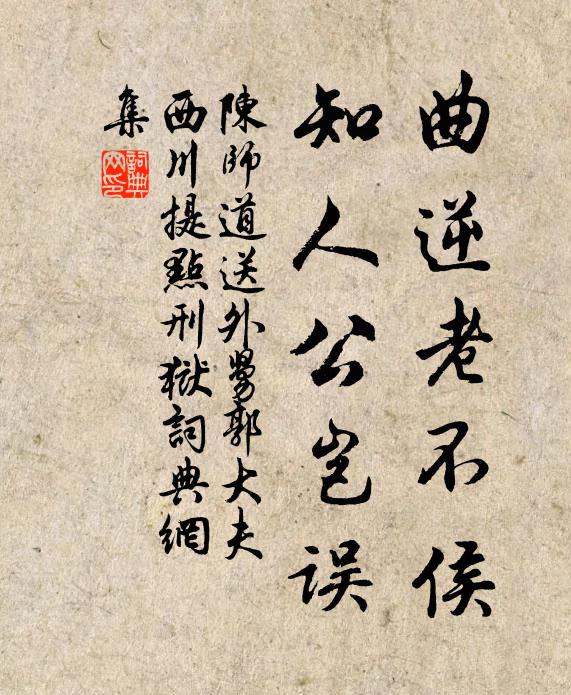 曲逆老不侯
知人公岂误
陳師道送外舅郭大夫
西川提點刑獄詞典網
集
詞典網印